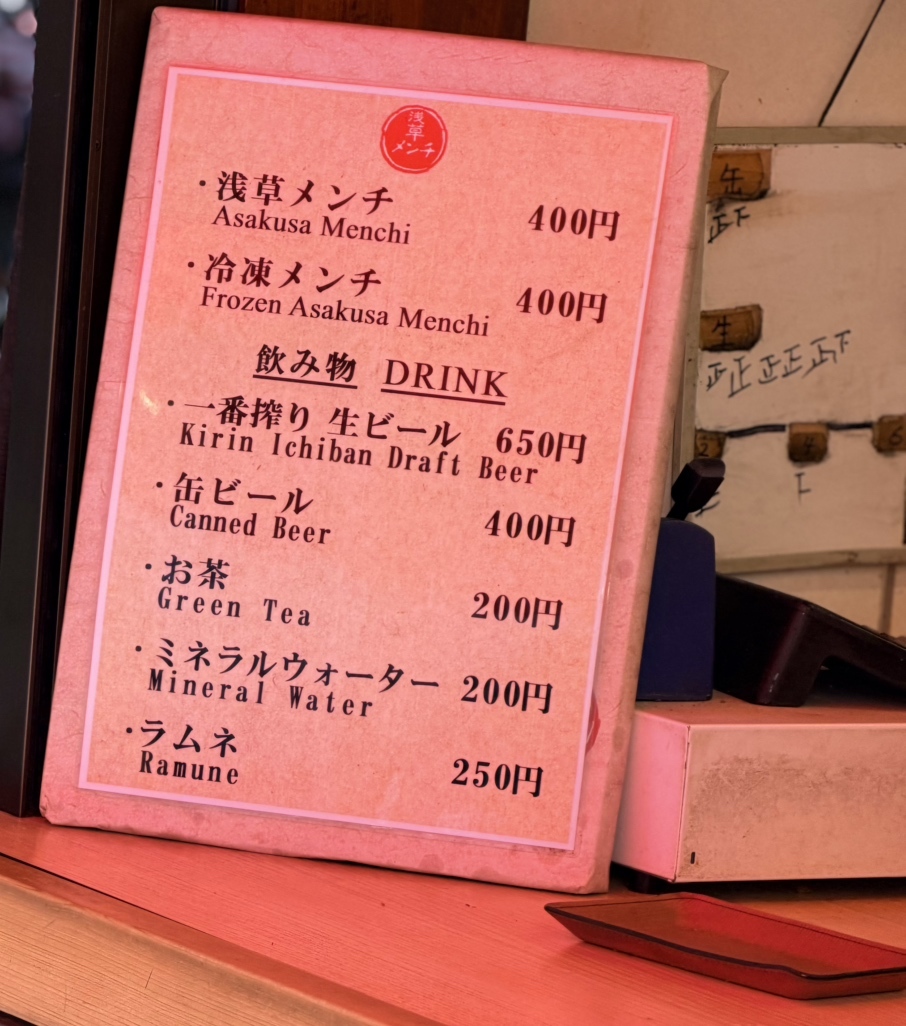 浅
草
メンチ
・浅草メンチ 400円
Asakusa Menchi
・冷凍メンチ 400円
Frozen Asakusa Menchi
飲み物 DRINK
・一番搾り 生ビール 650円
Kirin Ichiban Draft Beer
・缶ビール 400円
Canned Beer
・お茶 200円
Green Tea
・ミネラルウォーター 200円
Mineral Water
・ラムネ 250円
Ramune
缶
正下
生
正正正正正下
2